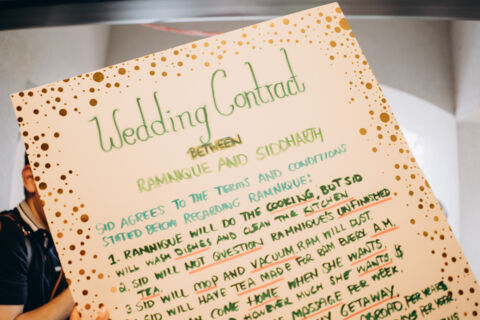 Wedding Contract
BETWEEN
RAMNIQUE AND SIDDHARTH
SID AGREES TO THE TERMS AND CONDITIONS
STATED BELOW REGARDING RAMNIQUE:
1. RAMNIQUE WILL DO THE COOKING, BUT SID
WILL WASH DISHES AND CLEAN THE KITCHEN
2. SID WILL NOT QUESTION RAMNIQUE'S UNFINISHED
TEA.
3. SID WILL MOP AND VACUUM, RAM WILL DUST.
WILL HAVE TEA MADE FOR RAM EVERY A.M.
COME HOME WHEN SHE WANTS,
HOWEVER MUCH SHE WANTS &
MASSAGE PER WEEK.
GETAWAY
ABROAD PER YEAR
PER YEAR